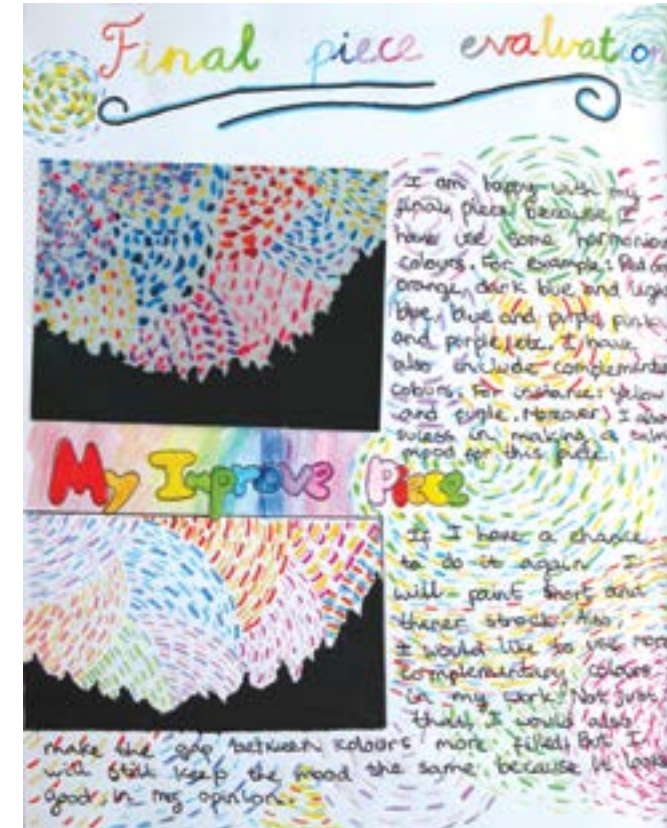 Final piece evaluation
I am happy with my
final piece because I
have use some harmonious
colours. For example: Red and
orange, dark blue and light
blue, blue and purple, pink
and purple etc. I have
also include complementary
colours. For instance: yellow
and purple. Moreover, I also
in making a calm
mood for this piece.
My Improve Piece
If I have a chance
to do it again I
will paint short and
. Also,
I would like to use more
complementary colours
in my work. Not just
that, I would also
make the gap between colours more filled. But I
will still keep the mood the same because it looks
good, in my opinion.